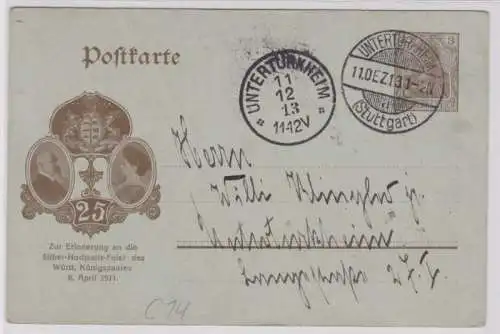 Postkarte
UNTERTÜRKHEIM
11
12
13
11-12V
UNTERTÜRKHEIM
11.DEZ.13.1-2N.
(Stuttgart)
3
25
Zur Erinnerung an die
Silber-Hochzeits-Feier des
Württ. Königspaares
8. April 1911.
Herrn
Willi
Untertürkheim
C14